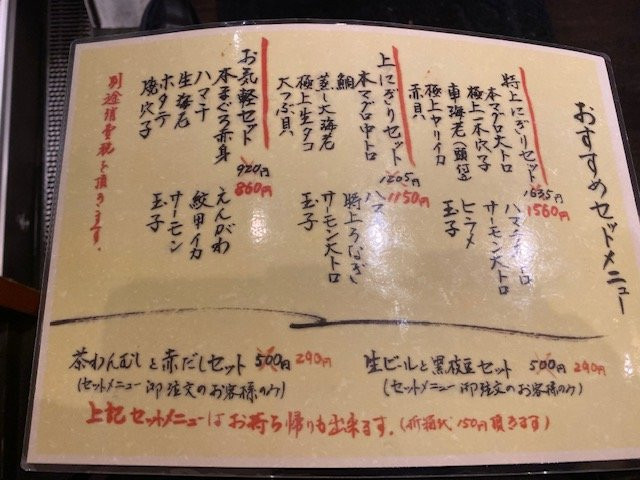 おすすめセットメニュー
特上にぎりセット 1635円 1560円
本マグロ大トロ
極上一本穴子
車海老(頭付)
極上ヤリイカ
赤貝
サーモン大トロ
ヒラメ
玉子
上にぎりセット 1205円 1150円
本マグロ中トロ
鯛
蒸し大海老
極上生タコ
大つぶ貝
ハマチ
特上うなぎ
サーモン大トロ
玉子
お気軽セット 920円 860円
本まぐろ赤身
ハマチ
生海老
ホタテ
焼穴子
えんがわ
紋甲イカ
サーモン
玉子
別途消費税を頂きます。
生ビールと黒枝豆セット 500円 290円
(セットメニュー御注文のお客様のみ)
茶わんむしと赤だしセット 500円 290円
(セットメニュー御注文のお客様のみ)
上記セットメニューはお持ち帰りも出来ます。(折箱代150円頂きます)